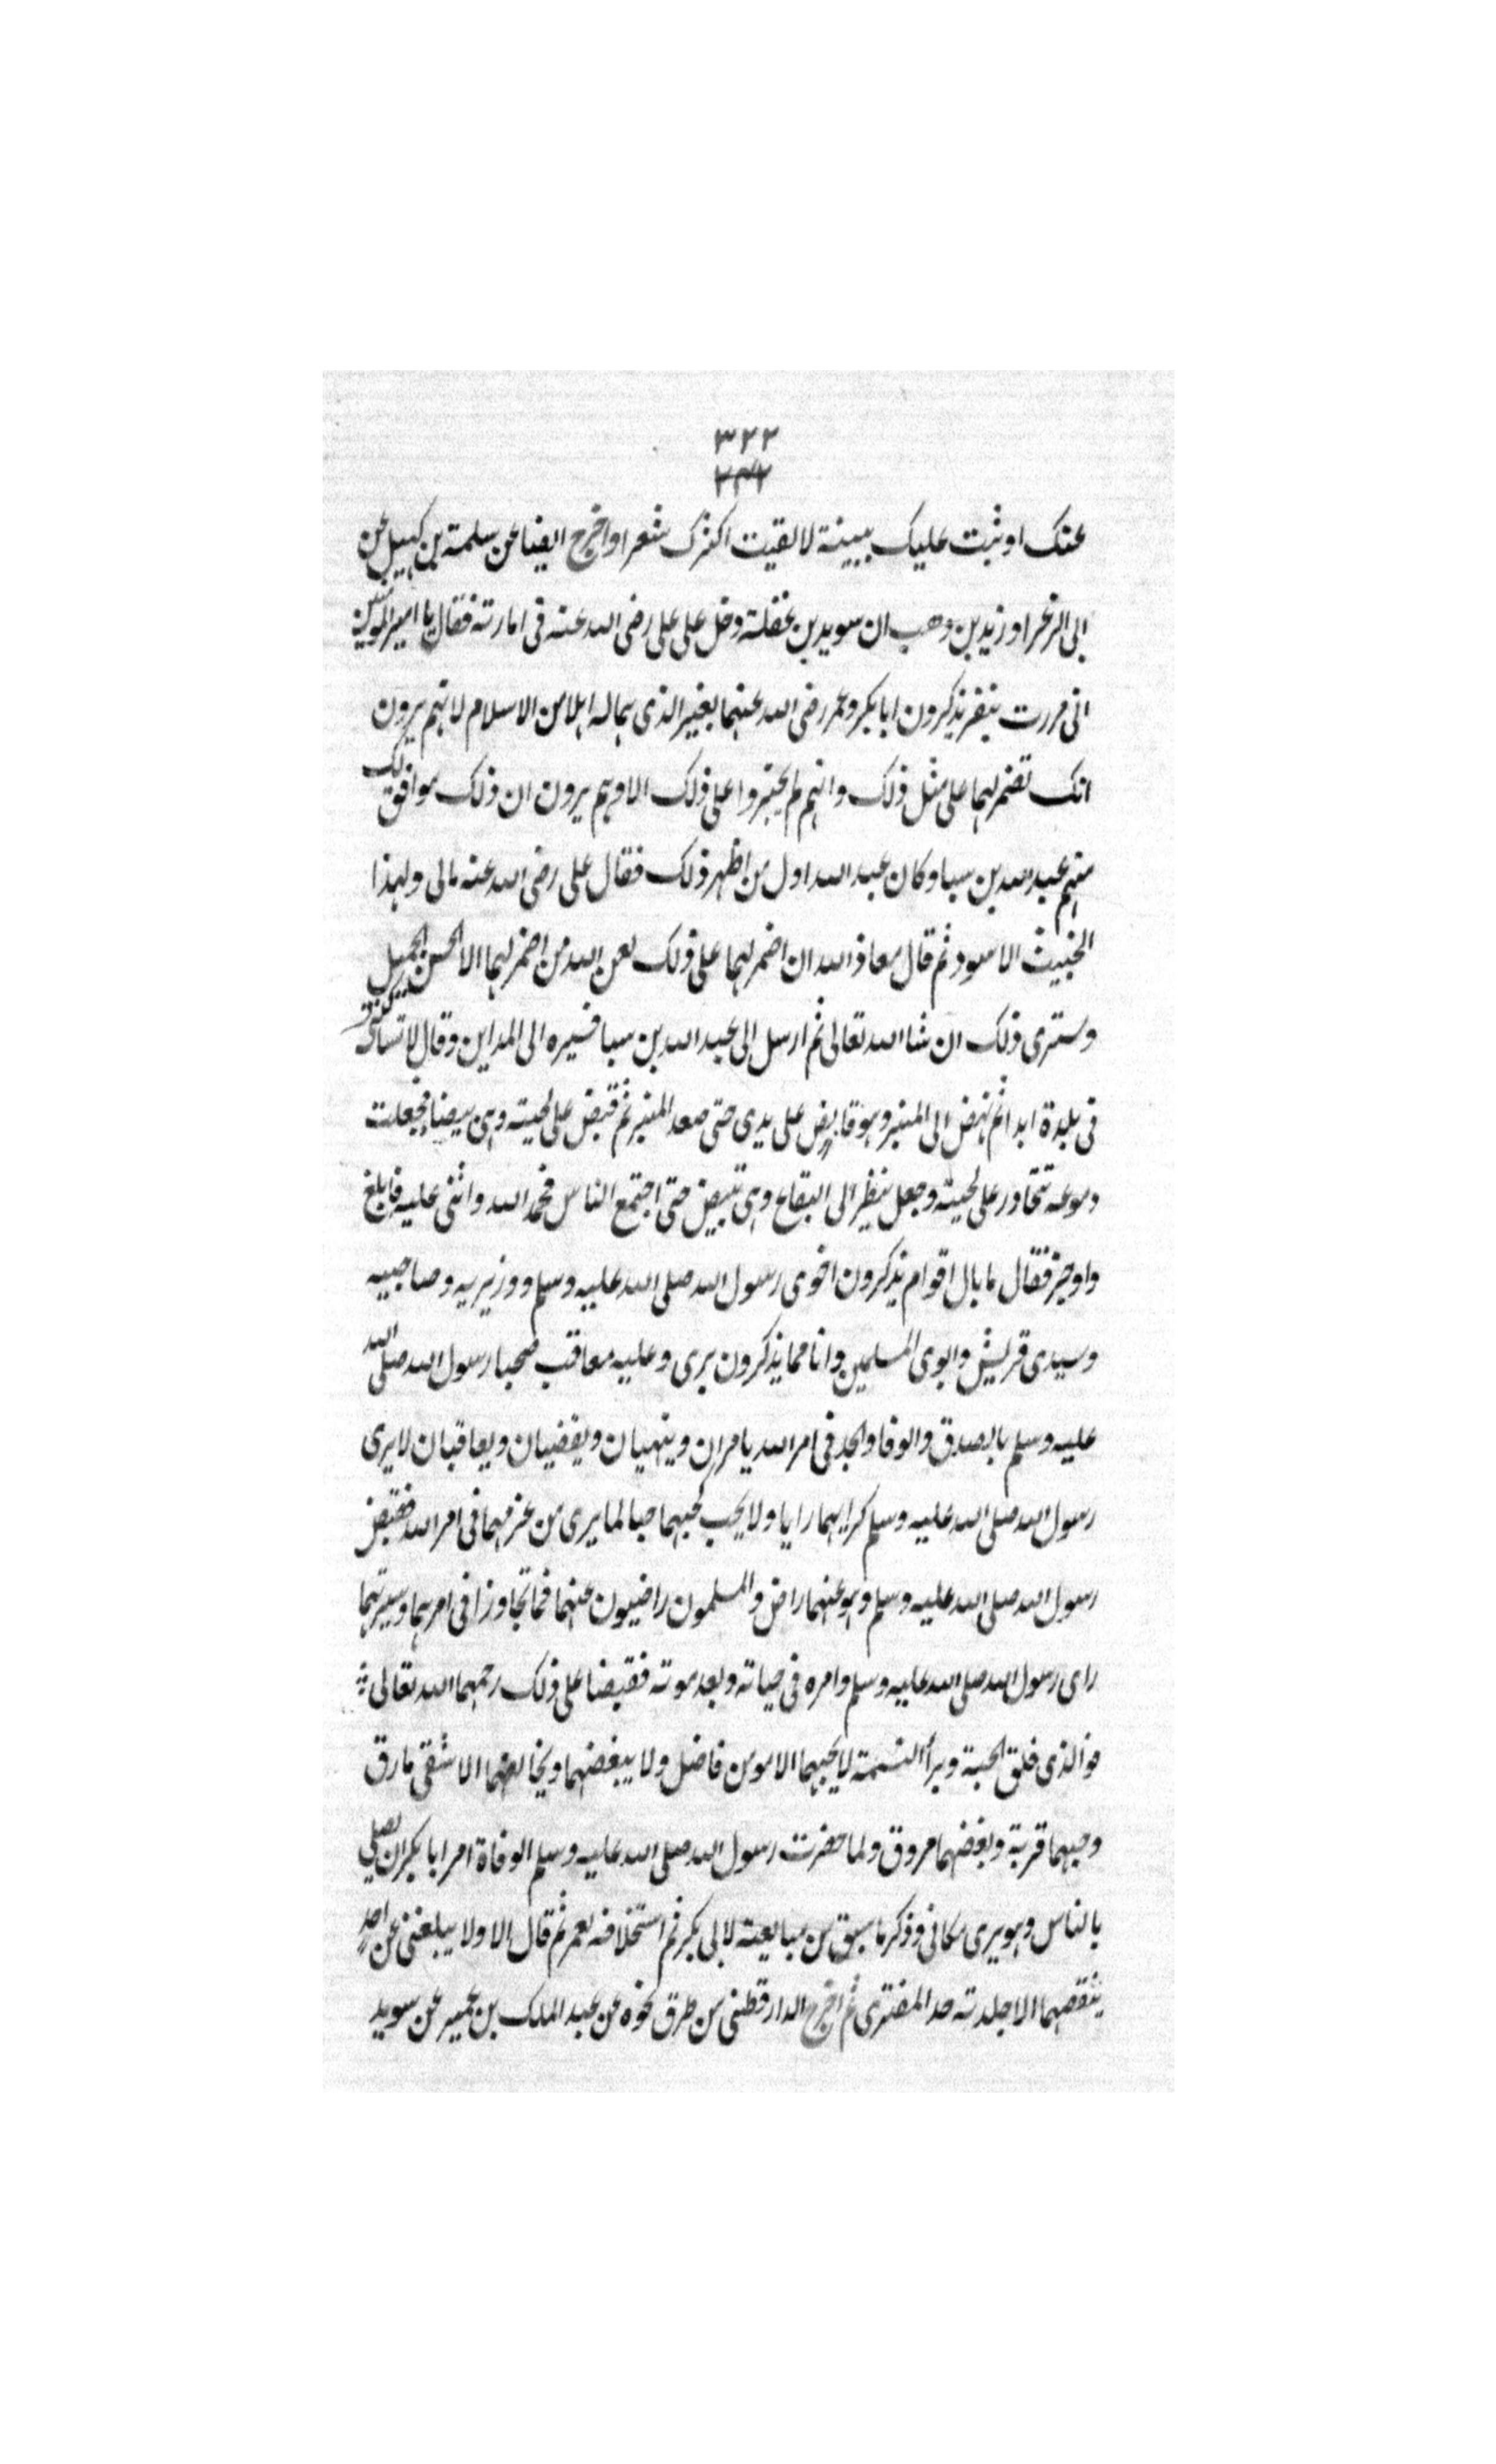 ٣٢٢
٣٣٢
عنك او ثبت عليك ببينة لالقيت اكثرك شعرا واخرج ايضا عن سلمة بن كهيل عن
ابى الزعرا وزيد بن وهب ان سويد بن غفلة دخل على على رضى الله عنه فى امارته فقال يا امير المومنين
انى مررت بنفر يذكرون ابا بكر وعمر رضى الله عنهما بغير الذى هما له اهلا من الاسلام لانهم يرون
انك تضمر لهما على مثل ذلك وانهم لم يجتروا على ذلك الا وهم يرون ان ذلك موافق لك
منهم عبد الله بن سبا وكان عبد الله اول من اظهر ذلك فقال على رضى الله عنه مالى ولهذا
الخبيث الاسود ثم قال معاذ الله ان اضمر لهما على ذلك لعن الله من اضمر لهما الا الحسن الجميل
وسترى ذلك ان شا الله تعالى ثم ارسل الى عبد الله بن سبا فسيره الى المداين وقال لا تساكنى
فى بلدة ابدا ثم نهض الى المنبر وهو قابض على يدى حتى صعد المنبر ثم قبض على لحيته وهى بيضا فجعلت
دموعه تتحادر على لحيته وجعل ينظر الى البقاع وهى تبيض حتى اجتمع الناس فحمد الله واثنى عليه فابلغ
واوجز فقال ما بال اقوام يذكرون اخوى رسول الله صلى الله عليه وسلم ووزيريه وصاحبيه
وسيدى قريش وابوى المسلمين وانا مما يذكرون برى وعليه معاقب صحبا رسول الله صلى الله
عليه وسلم بالصدق والوفا والجد فى امر الله يامران وينهيان ويقضيان ويعاقبان لا يرى
رسول الله صلى الله عليه وسلم كرايهما رايا ولا يحب كحبهما حبا لما يرى من عزمهما فى امر الله فقبض
رسول الله صلى الله عليه وسلم وهو عنهما راض والمسلمون راضيون عنهما فما تجاوزا فى امرهما وسيرتهما
راى رسول الله صلى الله عليه وسلم وامره فى حياته وبعد موته فقبضا على ذلك رحمهما الله تعالى
فو الذى فلق الحبة وبرأ النسمة لا يحبهما الا مومن فاضل ولا يبغضهما ويخالفهما الا شقى مارق
وحبهما قربة وبغضهما مروق ولما حضرت رسول الله صلى الله عليه وسلم الوفاة امر ابا بكر ان يصلى
بالناس وهو يرى مكانى وذكر ما سبق من مبايعته لابى بكر ثم استخلافه لعمر ثم قال الا ولا يبلغنى عن احد
ينقصهما الا جلدته حد المفترى ثم اخرج الدارقطنى من طرق نحوه عن عبد الملك بن عمير عن سويد